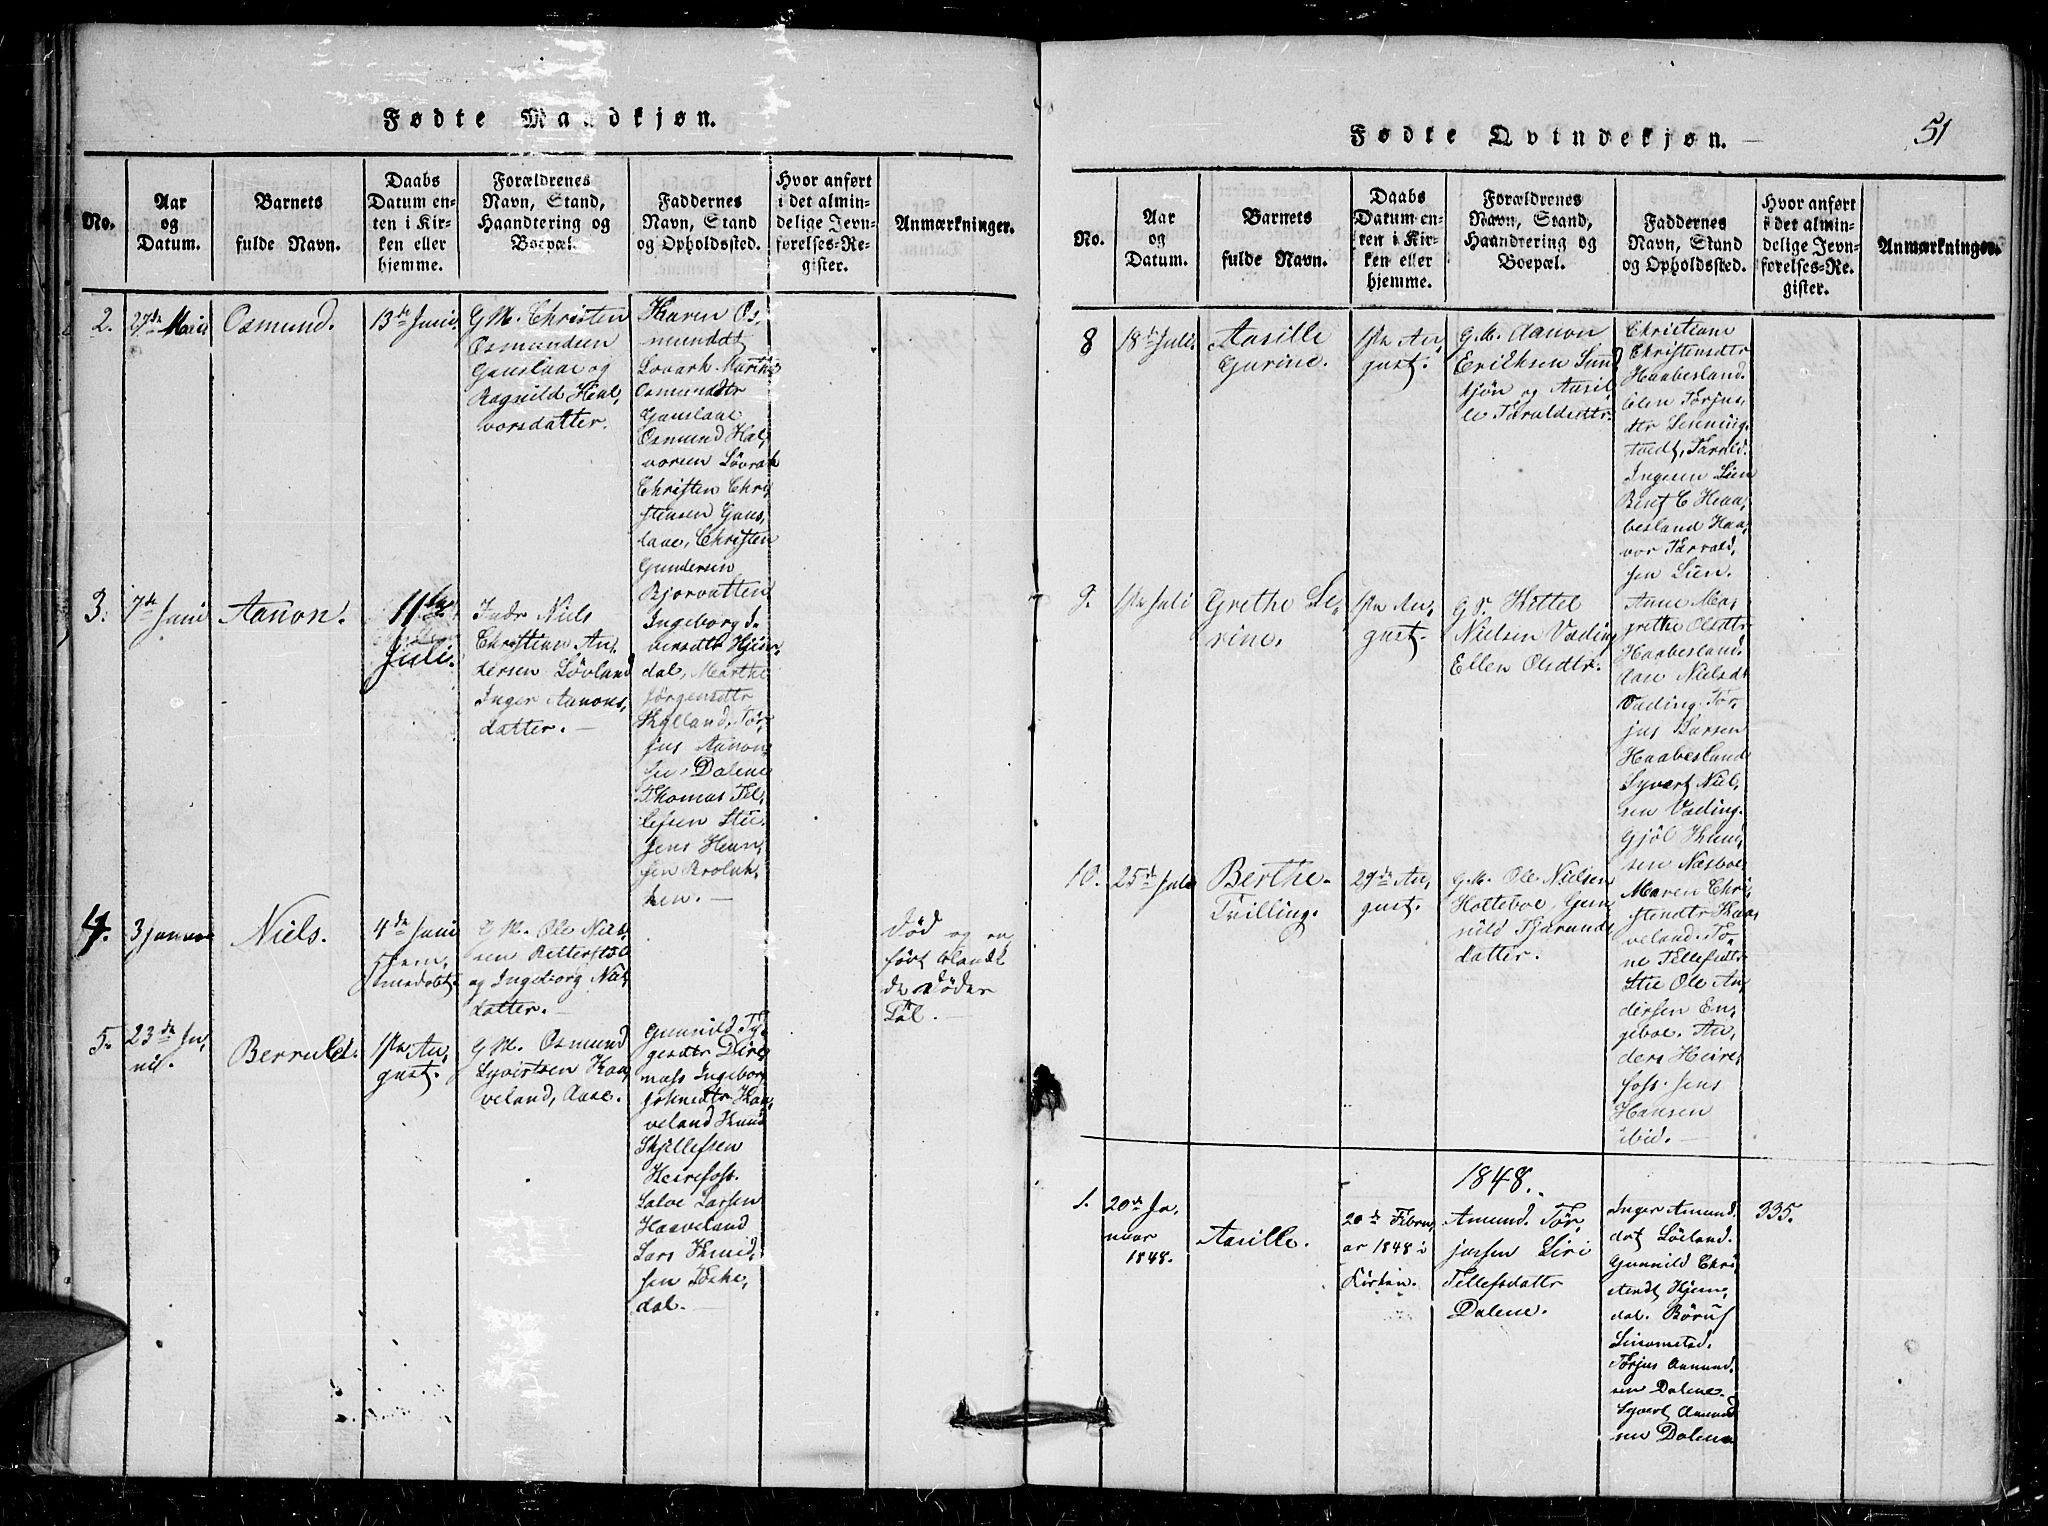 Fødte Mandkjøn.
No.
Aar
og
Datum.
Barnets
fulde Navn.
Daabs
Datum en-
ten i Kir-
ken eller
hjemme.
Forældrenes
Navn, Stand,
Haandtering og
Boepæl.
Faddernes
Navn, Stand
og Opholdssted.
Hvor anført
i det almin-
delige Jevn-
førelses-Re-
gister.
Anmærkninger.
2.
27de Maii
Osmund.
13de Junii
G. M. Christen
Osmundsen
Gauslaae og
Ragnild Hal,
vorsdatter.
Karen Os,
munddt
Lovark Marthe
Osmunddtr
Gauslaae
Osmund Hal,
vorsen Løvrak
Christen Chri
stensen Gaus,
laae, Christen
Gundersen
Bjorvatten
3.
7de Juni
Aanon.
11te
Juli.
Indr Niels
Christian An,
dersen Løvland
Inger Aanons,
datter. —
Ingeborg I,
versdtr Hjem
dal, Marthe
Jörgensdtr
Kylland, Tor,
jus Aanon,
sen Dalene
Thomas Tel,
lefsen Stie
Jens Hean,
sen
ken. —
4.
3 januar
Niels.
4de Juni
hjem,
medobt.
G. M. Ole Niel,
sen
og Ingeborg Niels
datter. —
Død og an
ført blandt
de Døde
Tal. —
5.
23de Ju,
nii.
Berruld.
1ste Au,
gust.
G. M. Osmund
Syvertsen Haa,
veland, Aase.
Gunnild Ty,
gesdtr Dire,
næss Ingebor
Johnsdtr Haa,
veland Knud
Skjellefsen
Heirefoss.
Salve Larsen
Haaveland
Lars Knud,
sen Toske,
dal. —
Fødte Qvindekjøn.
51
No.
Aar
og
Datum.
Barnets
fulde Navn.
Daabs
Datum en-
ten i Kir-
ken eller
hjemme.
Forældrenes
Navn, Stand,
Haandtering og
Boepæl.
Faddernes
Navn, Stand
og Opholdssted.
Hvor anført
i det almin-
delige Jevn-
førelses-Re-
gister.
Anmærkninger.
8
18de Juli.
Aasille
Gurine.
1ste Au,
gust.
G. M. Aanon
Eriksen Sund
tjøn og Aasil
le Taraldsdtr.
Christiane
Christensdtr
Haabesland.
Elen Torjus,
dtr Senning,
tvedt, Tarald.
Ingesen Lien
Bent C Haa,
besland Haa,
vor Tarrald,
sen Lien.
9.
1ste Juli
Grethe Se,
rine.
1ste Au,
gust.
G. P. Kittel
Nielsen Væding
Ellen Olsdtr.
Anne Mar
grethe Olsdtr
Haabesland.
Ane Nielsdt
Væding. Tor,
jus Larsen
Haabesland
Syvert Niel,
sen Væding.
Gjöl Knud
sen Næsboe
10.
25de Juli
Berthe.
Tvilling.
29de Au,
gust.
G. M. Ole Nielsen
Hotteboe Gun
nild Tjøruns,
datter.
Maren Chri,
stensdtr Haa,
veland. To,
ne Tellefsdtr
Stie Ole An,
dersen En,
geboe. An,
ders Heire,
foss. Jens
Hansen
ibid. —
1848.
1.
20de Ja,
nuar
1848.
Aasille.
20de Febru,
ar 1848 i
Kirken.
Amund Tor,
jussen Siri
Tellefsdattr
Dalene.
Inger Amund,
dat Løvland.
Gunnild Chri
stendt Hjem,
dal. Börus
Torjus Aamund
sen Dalene.
Syvert Aamund
sen Dalene
335.